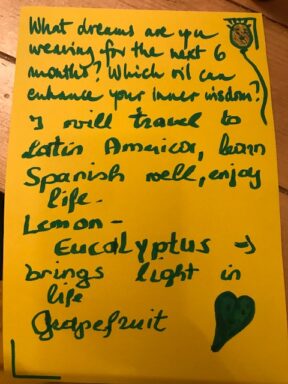 What dreams are you
weaving for the next 6
months? Which oil can
enhance your inner wisdom?
I will travel to
Latin America, learn
Spanish well, enjoy
life.
Lemon -
Eucalyptus →
brings light in
life
Grapefruit